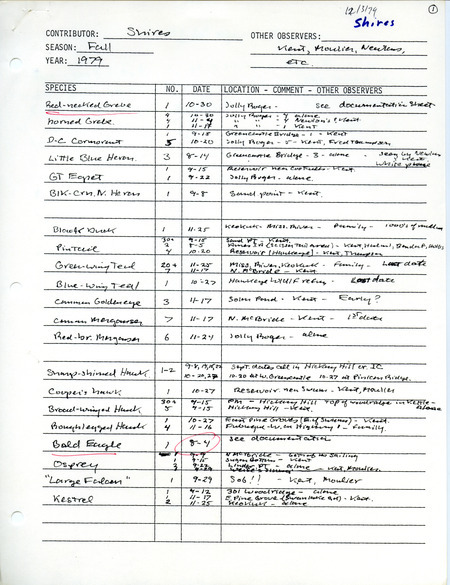 12/3/79
Shires
1
CONTRIBUTOR: Shires
OTHER OBSERVERS:
SEASON: Fall
Kent, Moulier, Newlons,
YEAR: 1979
etc.
SPECIES NO. DATE LOCATION - COMMENT - OTHER OBSERVERS
Red-necked Grebe 1 10-30 Jolly Roger - see documentation sheet
Horned Grebe 4 10-30 Jolly Roger - alone
4 11-4
1 11-17 " " - Kent
1 9-15 Greencastle Bridge - 1 - Kent
D-C Cormorant 5 10-20 Jolly Roger - 5 - Kent, Fred Thompson
Little Blue Heron 3 8-14 Greencastle Bridge - 3 - alone - seen by Newlon & Kent
white phase
GT Egret 1 9-15 Reservoir - Kent
1 9-22 Jolly Roger - alone
Blk-Crn. N. Heron 1 9-8 Sand point - Kent
Wood Duck 1 11-25 Keokuk - Miss. River - Family
30+ 9-15 Sand PT - Kent
Pintail 10-20 Reservoir (Hawkeye) - Kent, Thompson
Green-wing Teal 20+ 11-25 Miss. River, Keokuk - Family - Last date
7 11-17 N. McBride - Kent
Blue-wing Teal 1 10-27 Hawkeye Wildlife refuge - last date
Common Goldeneye 3 11-17 Solon Pond - Kent - Early?
Common Merganser 7 11-17 N. McBride - Kent - 1st date
Red-br. Merganser 6 11-24 Jolly Roger - alone
Sharp-shinned Hawk 1-2 Sept. dates all in Hickory Hill or IC
10-20, 27 10-30 at W. Greencastle 10-27 at Pinicon Ridge.
Cooper's Hawk 1 10-27 Reservoir near Swan - Kent, Moulier
Broad-winged Hawk 30+ 9-15
5 9-15 Hickory Hill - Kent
Rough legged Hawk 1 10-27
4 11-16 Dubuque - W. on Highway 1 - family
Bald Eagle 1 8-4 see documentation
Osprey 1 9-9 N. McBride - Kent
1 9-15 Sugar Bottom - Kent
"Large Falcon" 1 9-29 Sob!! - Kent, Moulier
Kestrel 1 9-12 301 Woodridge - alone
1 11-17 E. Pine Grove - Kent
2 11-25 Keokuk - alone